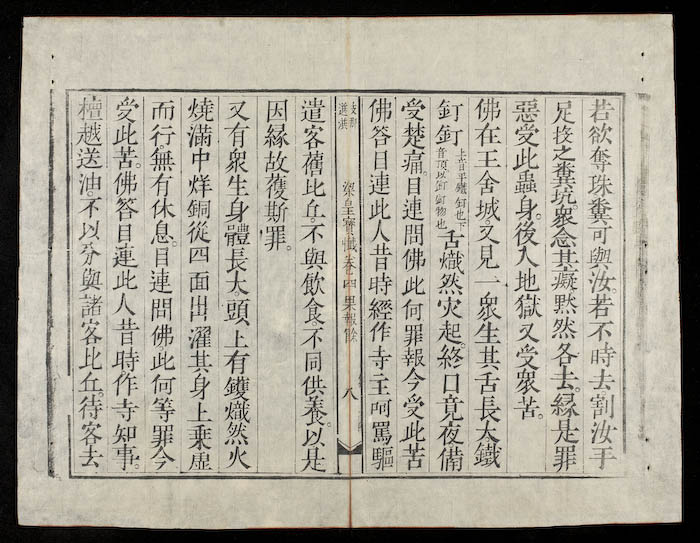 若欲奪珠糞可與汝若不時去割汝手
足投之糞坑。衆念其癡默然各去。緣是罪
惡受此蟲身。後入地獄又受衆苦。
佛在王舍城。又見一衆生其舌長大鐵
釘釘上音平鐵釘也下音頂以釘釘物也舌熾然火起。終日竟夜備
受楚痛。目連問佛此何罪報今受此苦
佛答目連此人昔時經作寺主呵罵驅
支那
梁皇寶懺卷四果報餘 八
遣客舊比丘。不與飲食。不同供養。以是
因緣故獲斯罪。
又有衆生身體長大頭上有鑊熾然火
燒滿中烊銅從四面出灌其身上乘虛
而行。無有休息。目連問佛此何等罪今
受此苦。佛答目連此人昔時作寺知事。
檀越送油。不以分與諸客比丘。待客去